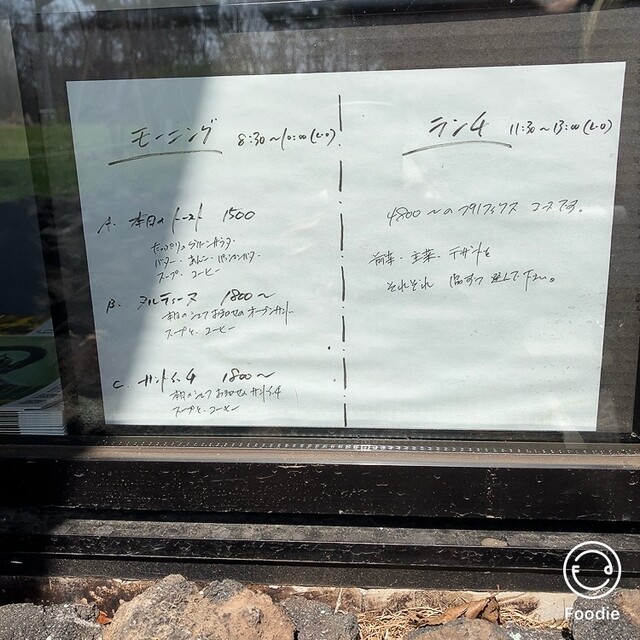 モーニング 8:30~10:00(L.O)
A. 本日のトースト 1500
たっぷりのグリーンサラダ
バター・あんこ・
スープ・コーヒー
B. タルティーヌ 1800~
本日のシェフおまかせのオープンサンド
スープと、コーヒー
C. サンドイッチ 1800~
本日のシェフおまかせのサンドイッチ
スープと、コーヒー
ランチ 11:30~13:00(L.O)
4800~のプリフィックスコースです。
前菜・主菜・デザートを
それぞれ1品ずつ選んで下さい。
Foodie